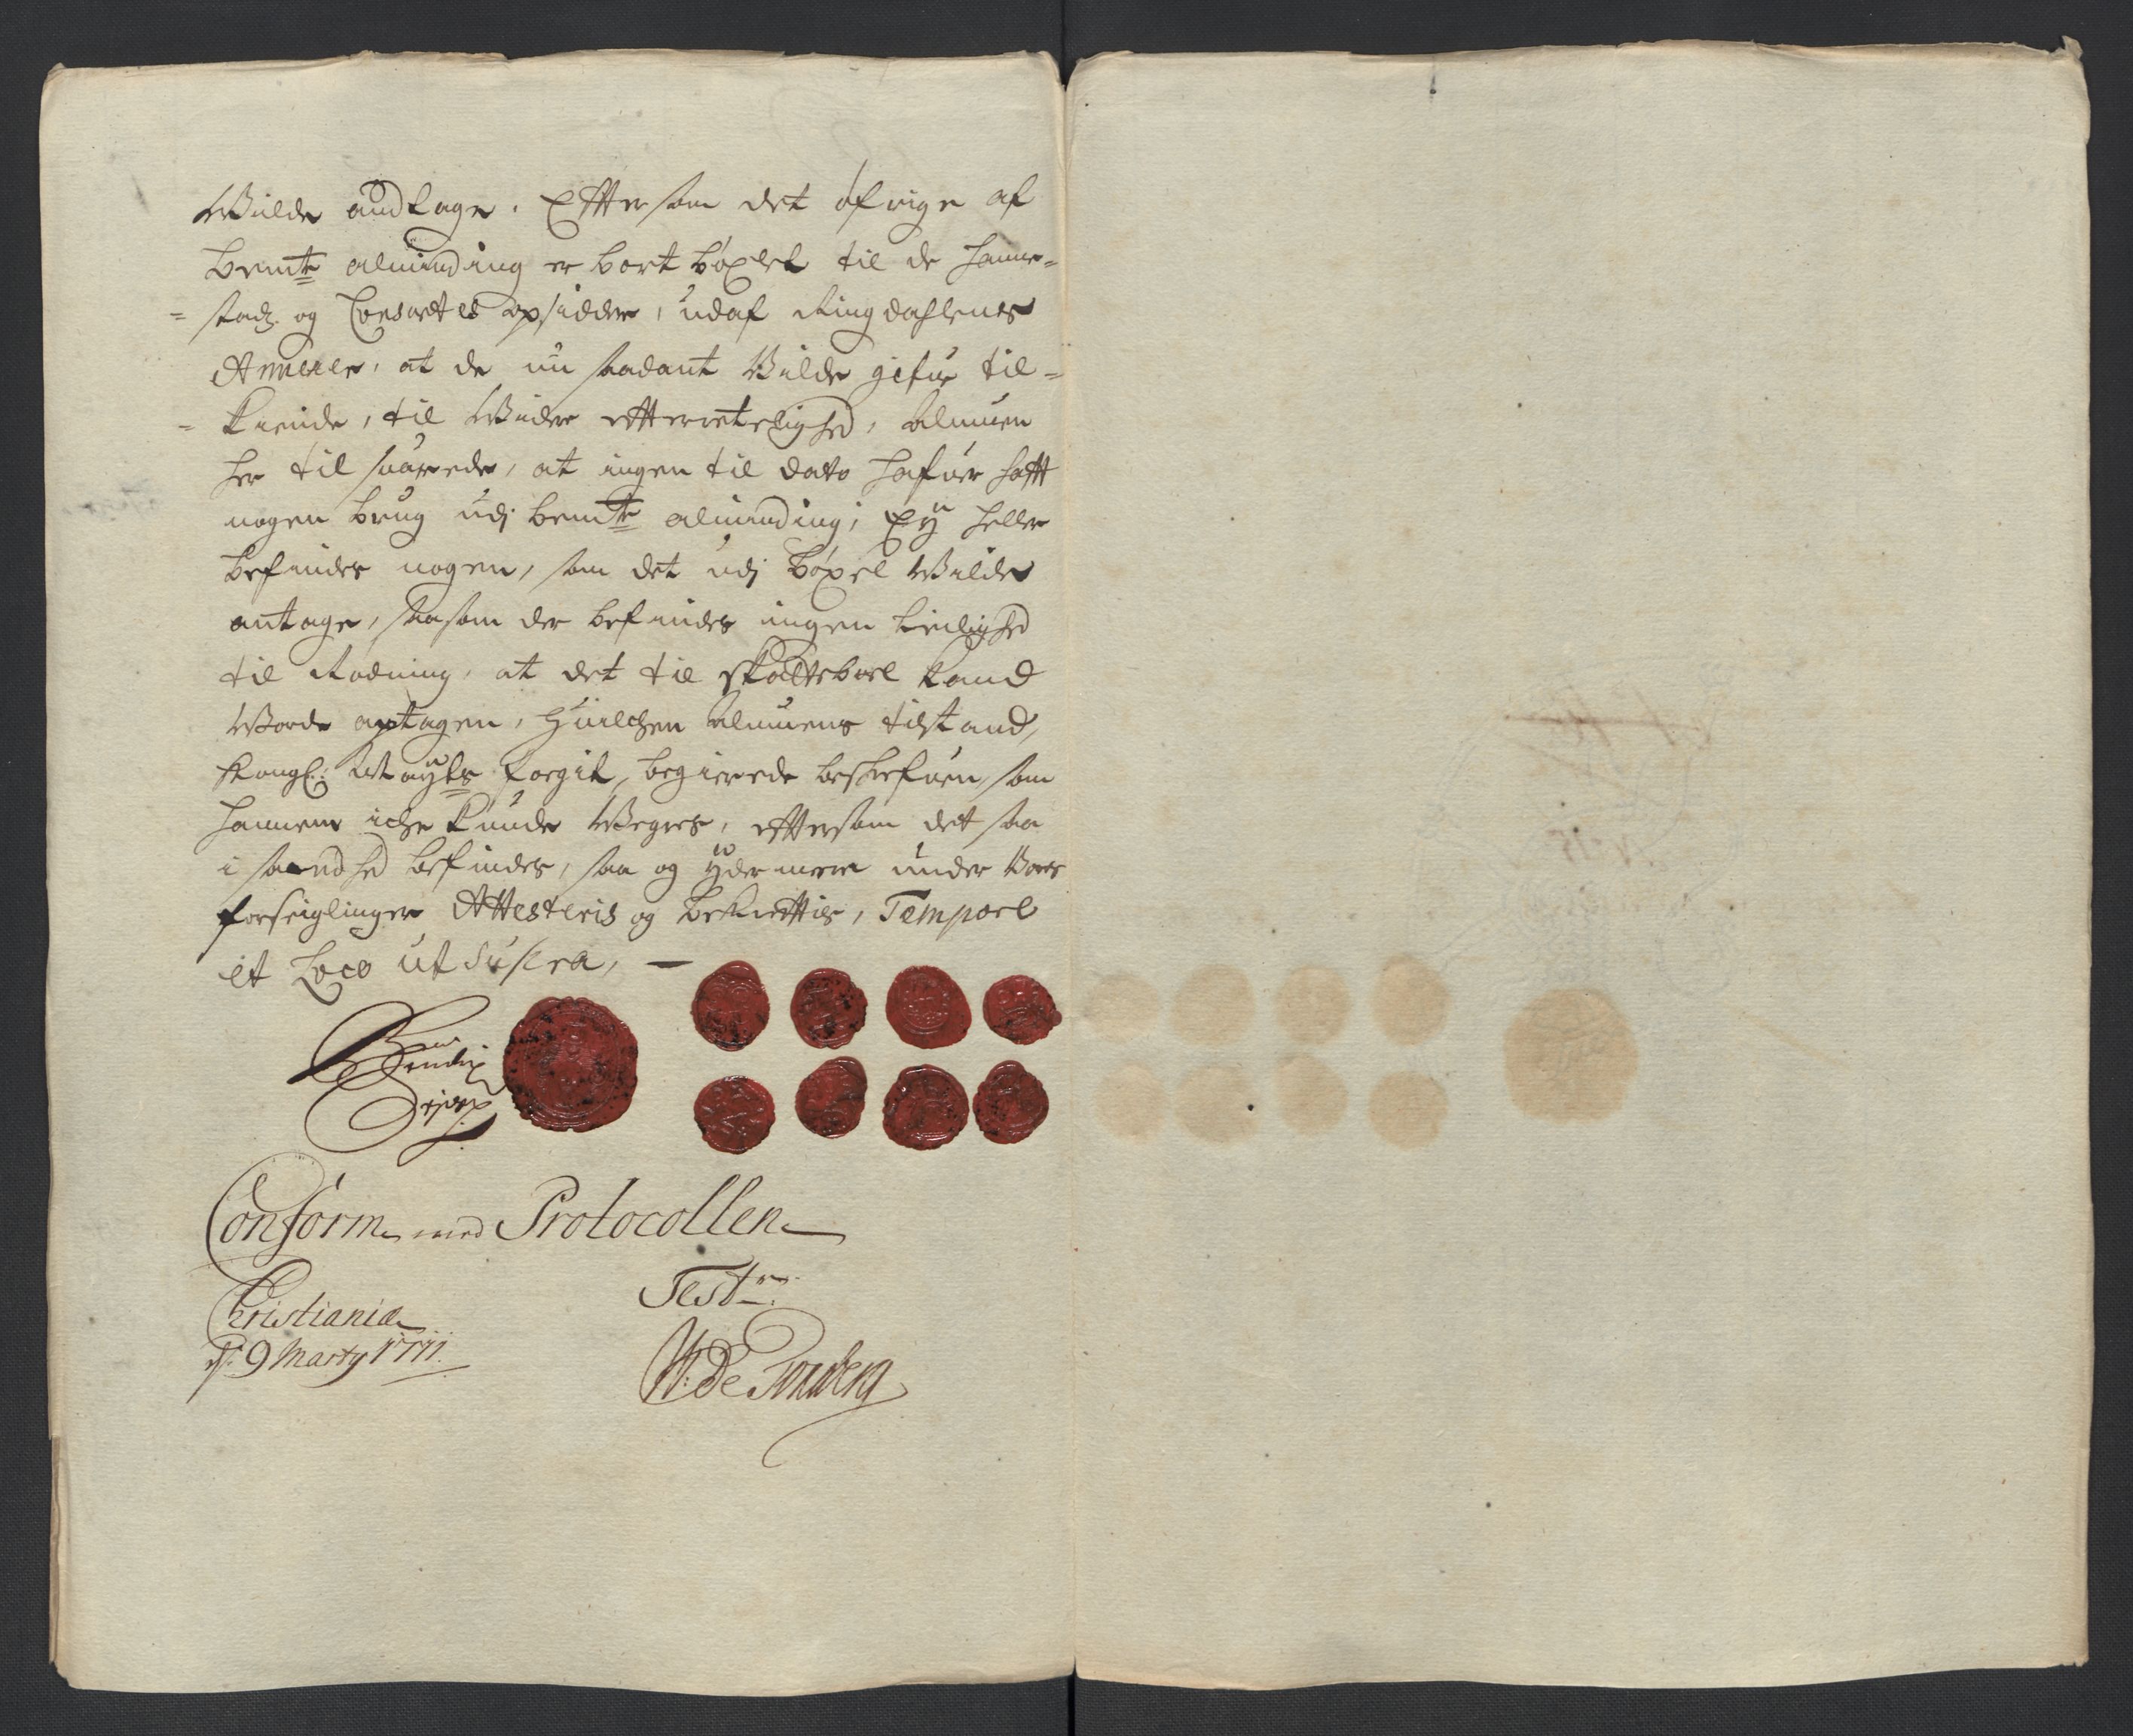 Wilde andtage. Efftersom det öfrige af
bemte alminding er bort böxlet til de Hanne=
=stad og Consortes opsiddere, udaf Ringdahlens
Annexer, at de nu saadant Wilde gifue til=
=kiende, til Widere efterretelighed, Almuen
her til suarede, at ingen til dato hafuer hafft
nogen brug udj bemte alminding, Ey heller
befindes nogen, som det udj böxel Wilde
antage, saasom der befindes ingen Leilighed
til Rödning, at det til skatteboel kand
Worde optagen, Huilchen Almuens tilstand,
Kongl: Mayts fogit, begierede beskrefuen, som
hannem iche kunde Wegres, effttersom det saa
i sandhed befindes, saa og ydermere under Vores
forseiglinger Attesteris og bekrefftis, Tempore
et Loco ut Supra,
Conform med Protocollen
Christiania Test
d: 9 Marty 1711.